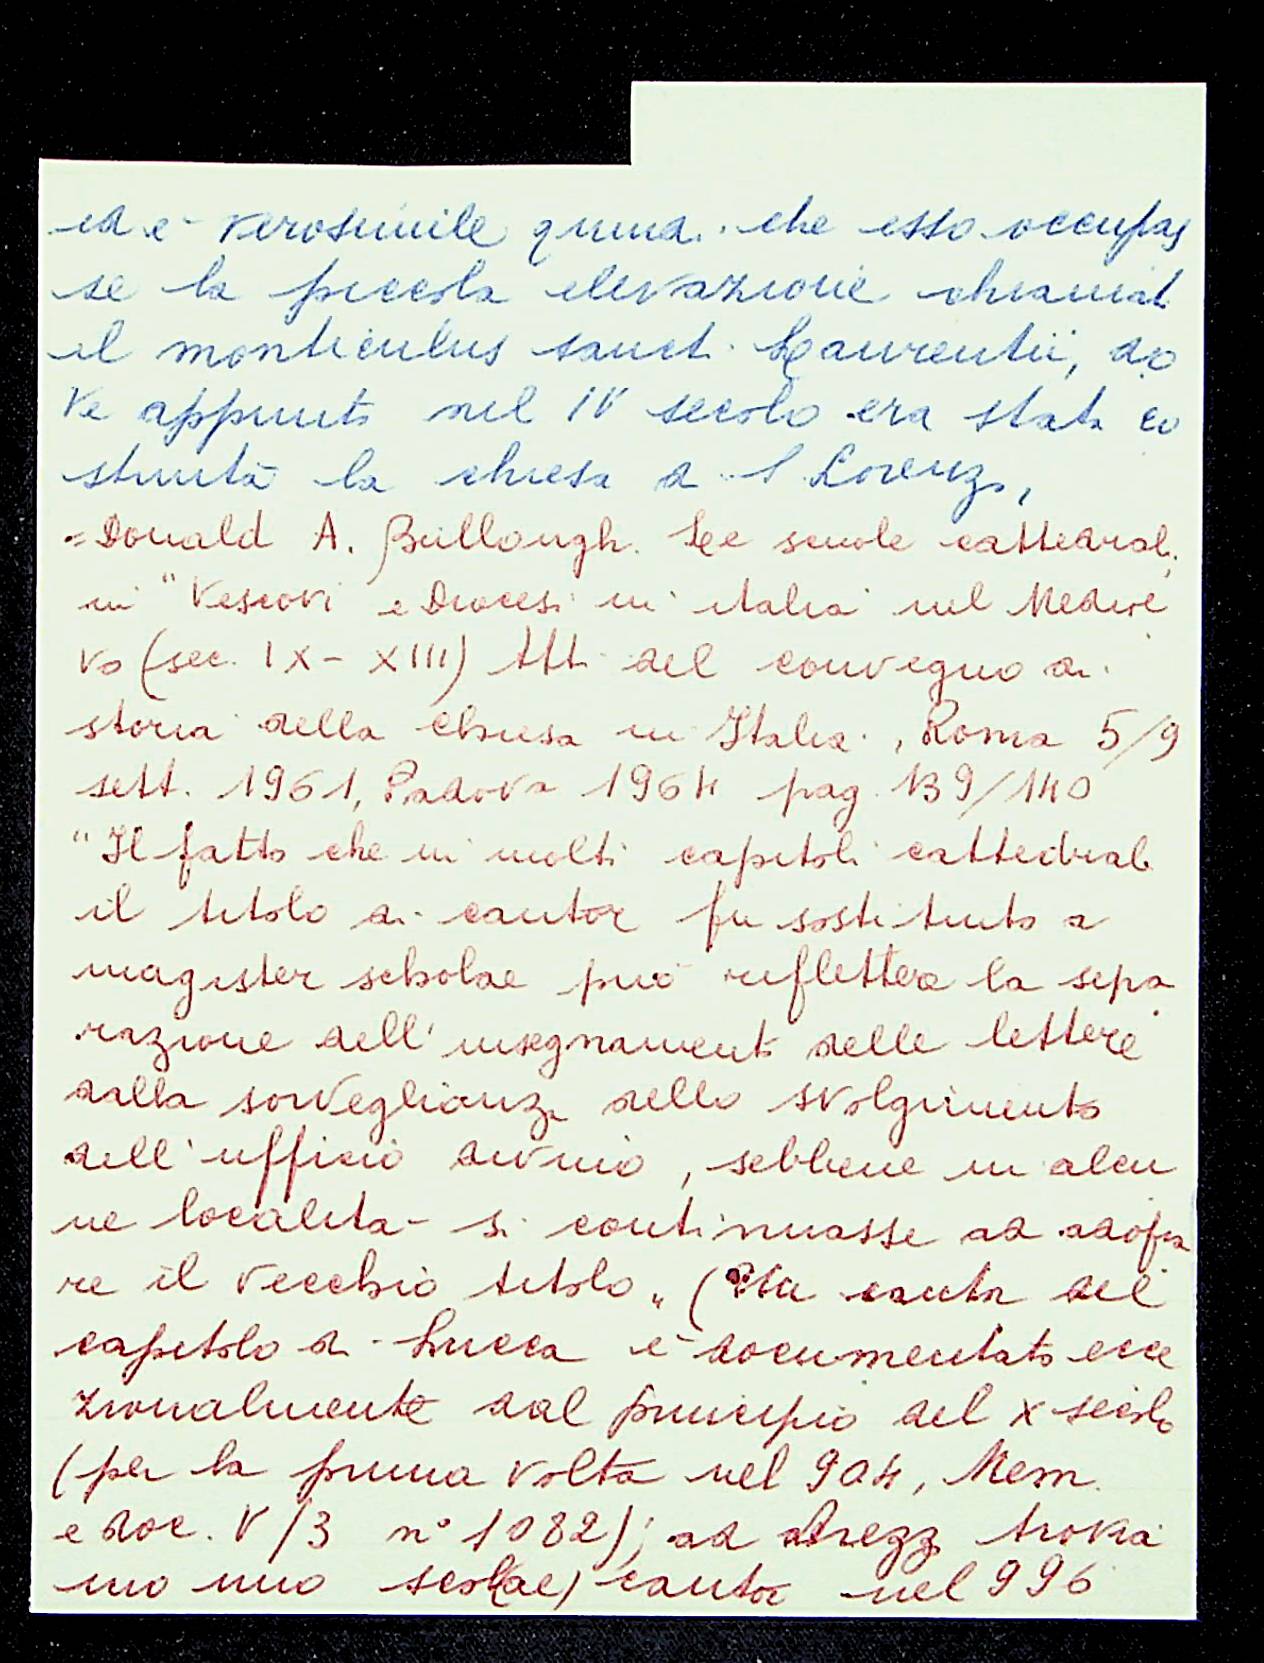 ed è verosimile quind. che esso occupas
se la piccola elevazione chiamat
il monticulus sanct. Laurentii, do
ve appunto nel IV secolo era stata co
struita la chiesa d S Lorenzo,
= Donald A. Bullough. Le scuole cattedral.
in "Vescovi e Diocesi in italia nel Medioe
vo (sec. IX - XIII) Atti del convegno di
storia della Chiesa in Italia, Roma 5/9
sett. 1961, Padova 1964 pag. 139/140
"Il fatto che in molti capitoli cattedrali
il titolo di cantor fu sostituito a
magister scholae può riflettere la sepa
razione dell'insegnamento delle lettere
dalla sorveglianza dello svolgimento
dell'ufficio divino, sebbene in alcu
ne località si continuasse ad adopra
re il vecchio titolo" (Un cantor del
capitolo di Lucca è documentato ecce
zionalmente dal principio del X secolo
(per la prima volta nel 904, Mem.
e doc. V/3 n° 1082); ad Arezzo trovia
mo uno scolae) cantor nel 996